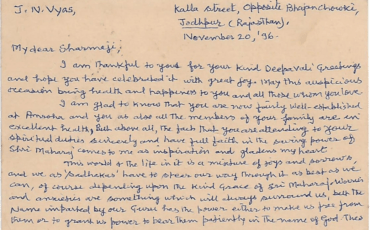 J. N. Vyas,
Kalla Street, Opposite Bhapnchowki,
Jodhpur (Rajasthan).
November 20, '96.
My dear Sharmaji,
I am thankful to you for your kind Deepavali Greetings
and hope you have celebrated it with great joy. May this auspicious
occasion bring health and happiness to you and all those whom you love.
I am glad to know that you are now fairly well-established
at Amroha and you as also all the members of your family are in
excellent health, but above all, the fact that you are attending to your
spiritual duties seriously and have full faith in the saving power of
Shri Maharaj comes to me as inspiration and gladdens my heart.
This world & the life in it is a mixture of joys and sorrows
and we as 'sadhakas' have to steer our way through it as best as we
can, of course depending upon the Kind Grace of Shri Maharaj. Worries
and anxieties are something which will always surround us, but the
Name imparted by our Guru has the power either to make us free from
them or to grant us power to bear them patiently in the name of God. Thee